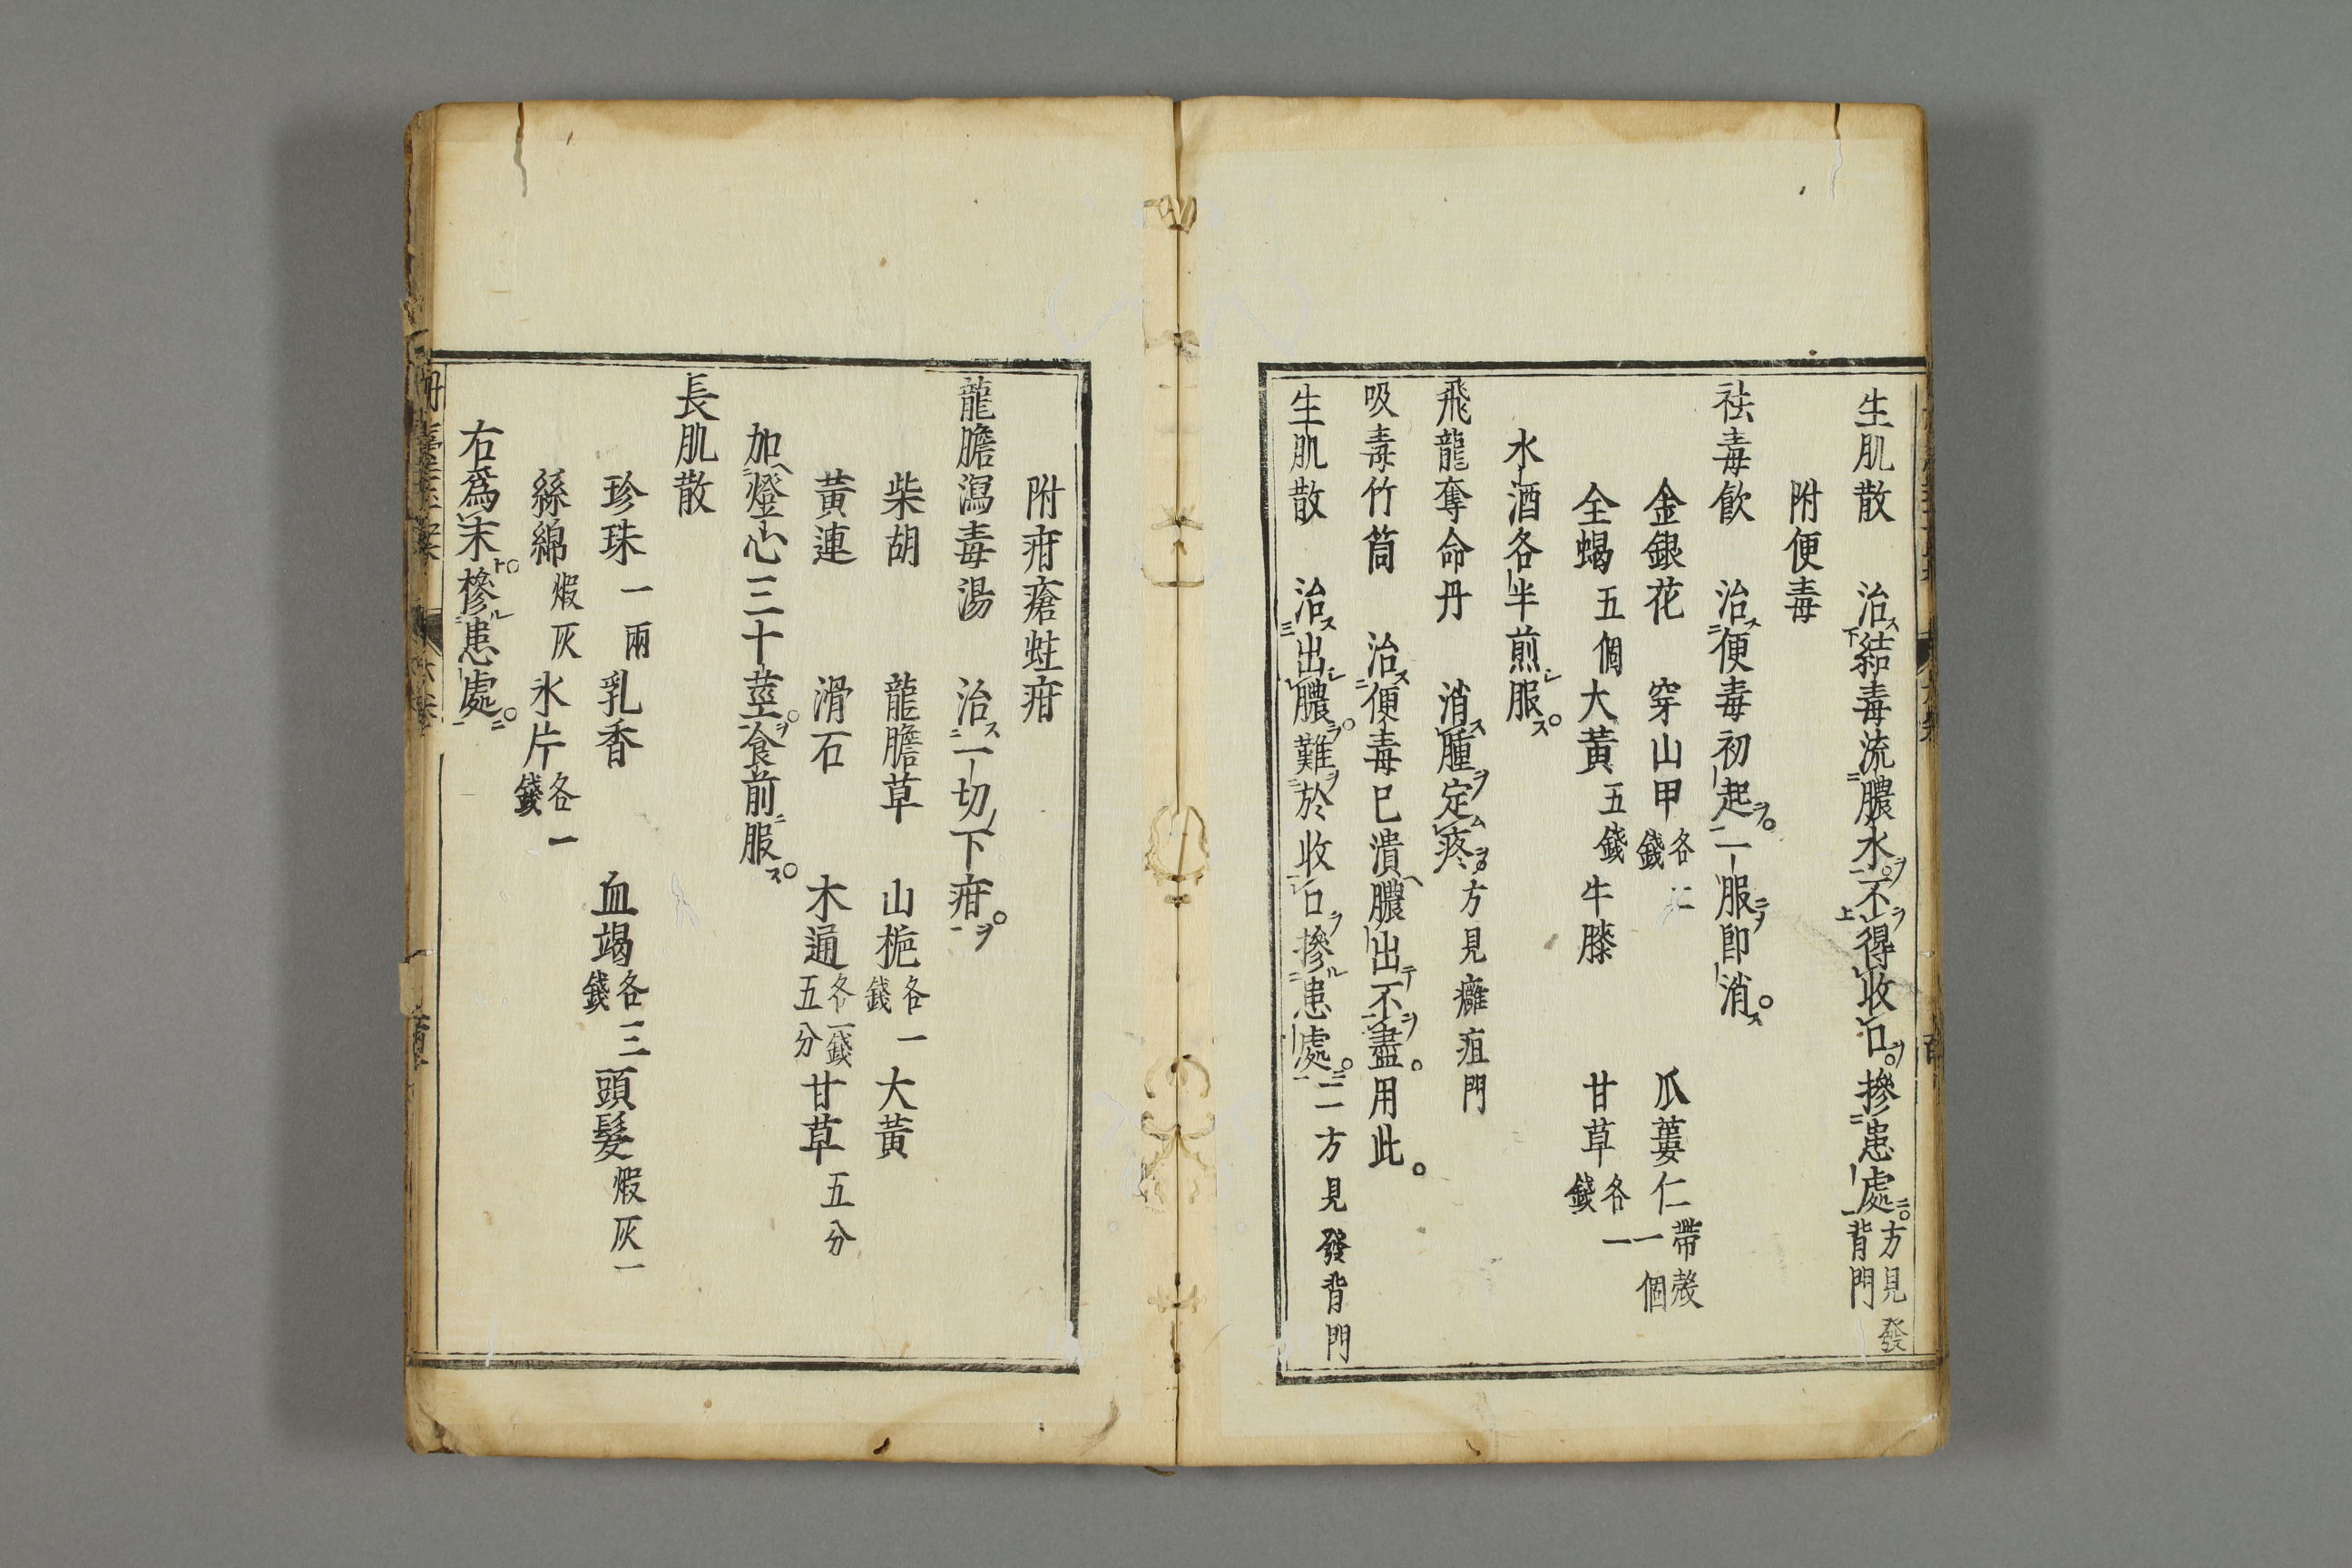 生肌散　治結毒流膿水不得收口摻患處方見發背門
附便毒
祛毒飲　治便毒初起一服即消
金銀花　穿山甲各二錢　瓜蔞仁帶殼一個
全蝎五個　大黃五錢　牛膝　甘草各一錢
水酒各半煎服
飛龍奪命丹　消腫定疼方見癰疽門
吸毒竹筒　治便毒已潰膿出不盡用此
生肌散　治出膿難於收口摻患處二方見發背門
附疳瘡蛀疳
龍膽瀉毒湯　治一切下疳
柴胡　龍膽草　山梔各一錢　大黃
黃連　滑石　木通各一錢五分　甘草五分
加燈心三十莖食前服
長肌散
珍珠一兩　乳香　血竭各三錢　頭髮煅灰一
絲綿煅灰　氷片各一錢
右爲末摻患處